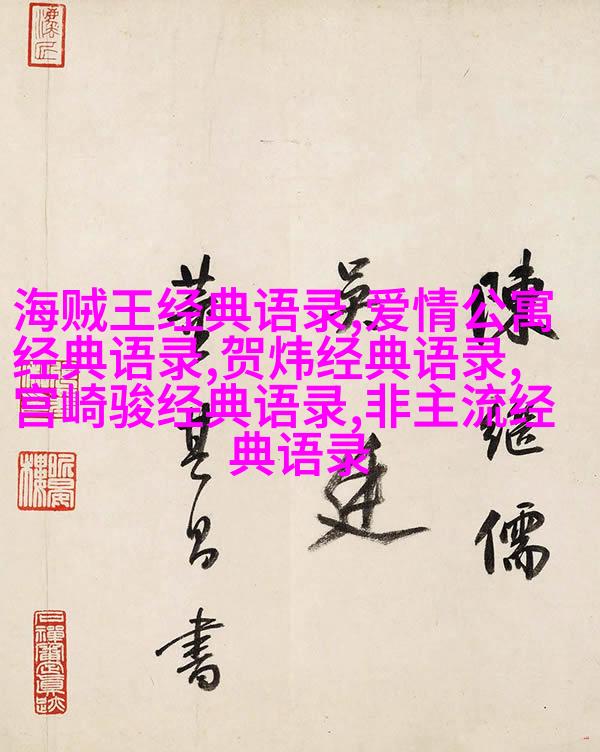 海贼王经典语录,爱情公寓
经典语录,贺炜经典语录,
宫崎骏经典语录,非主流经
典语录
陳繼儒
吳廷
董其昌書